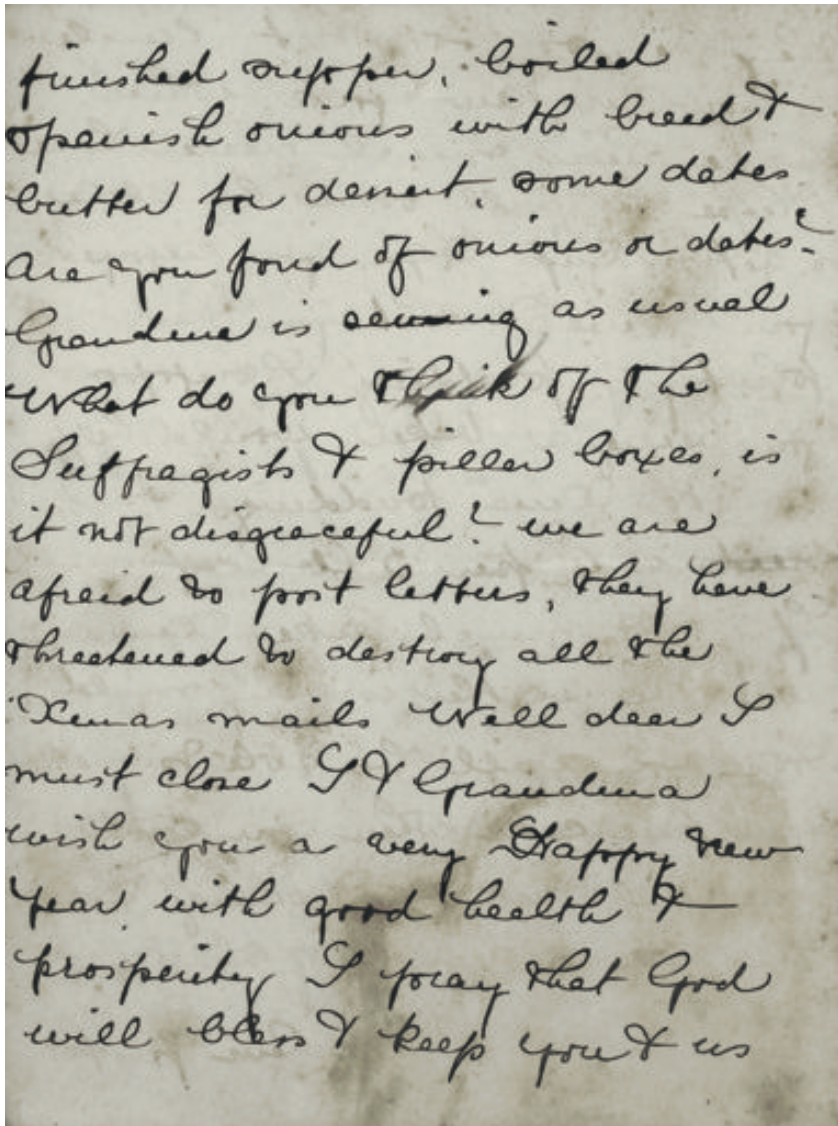 finished supper, boiled
spanish onions with bread &
butter for dessert, some dates
are you fond of onions or dates?
Grandma is sewing as usual
What do you think of the
Suffragists & pillar boxes, is
it not disgraceful? we are
afraid to post letters, they have
threatened to destroy all the
Xmas mails Well dear I
must close I & Grandma
wish you a very Happy new
year with good health &
prosperity I pray that God
will bless & keep you & us